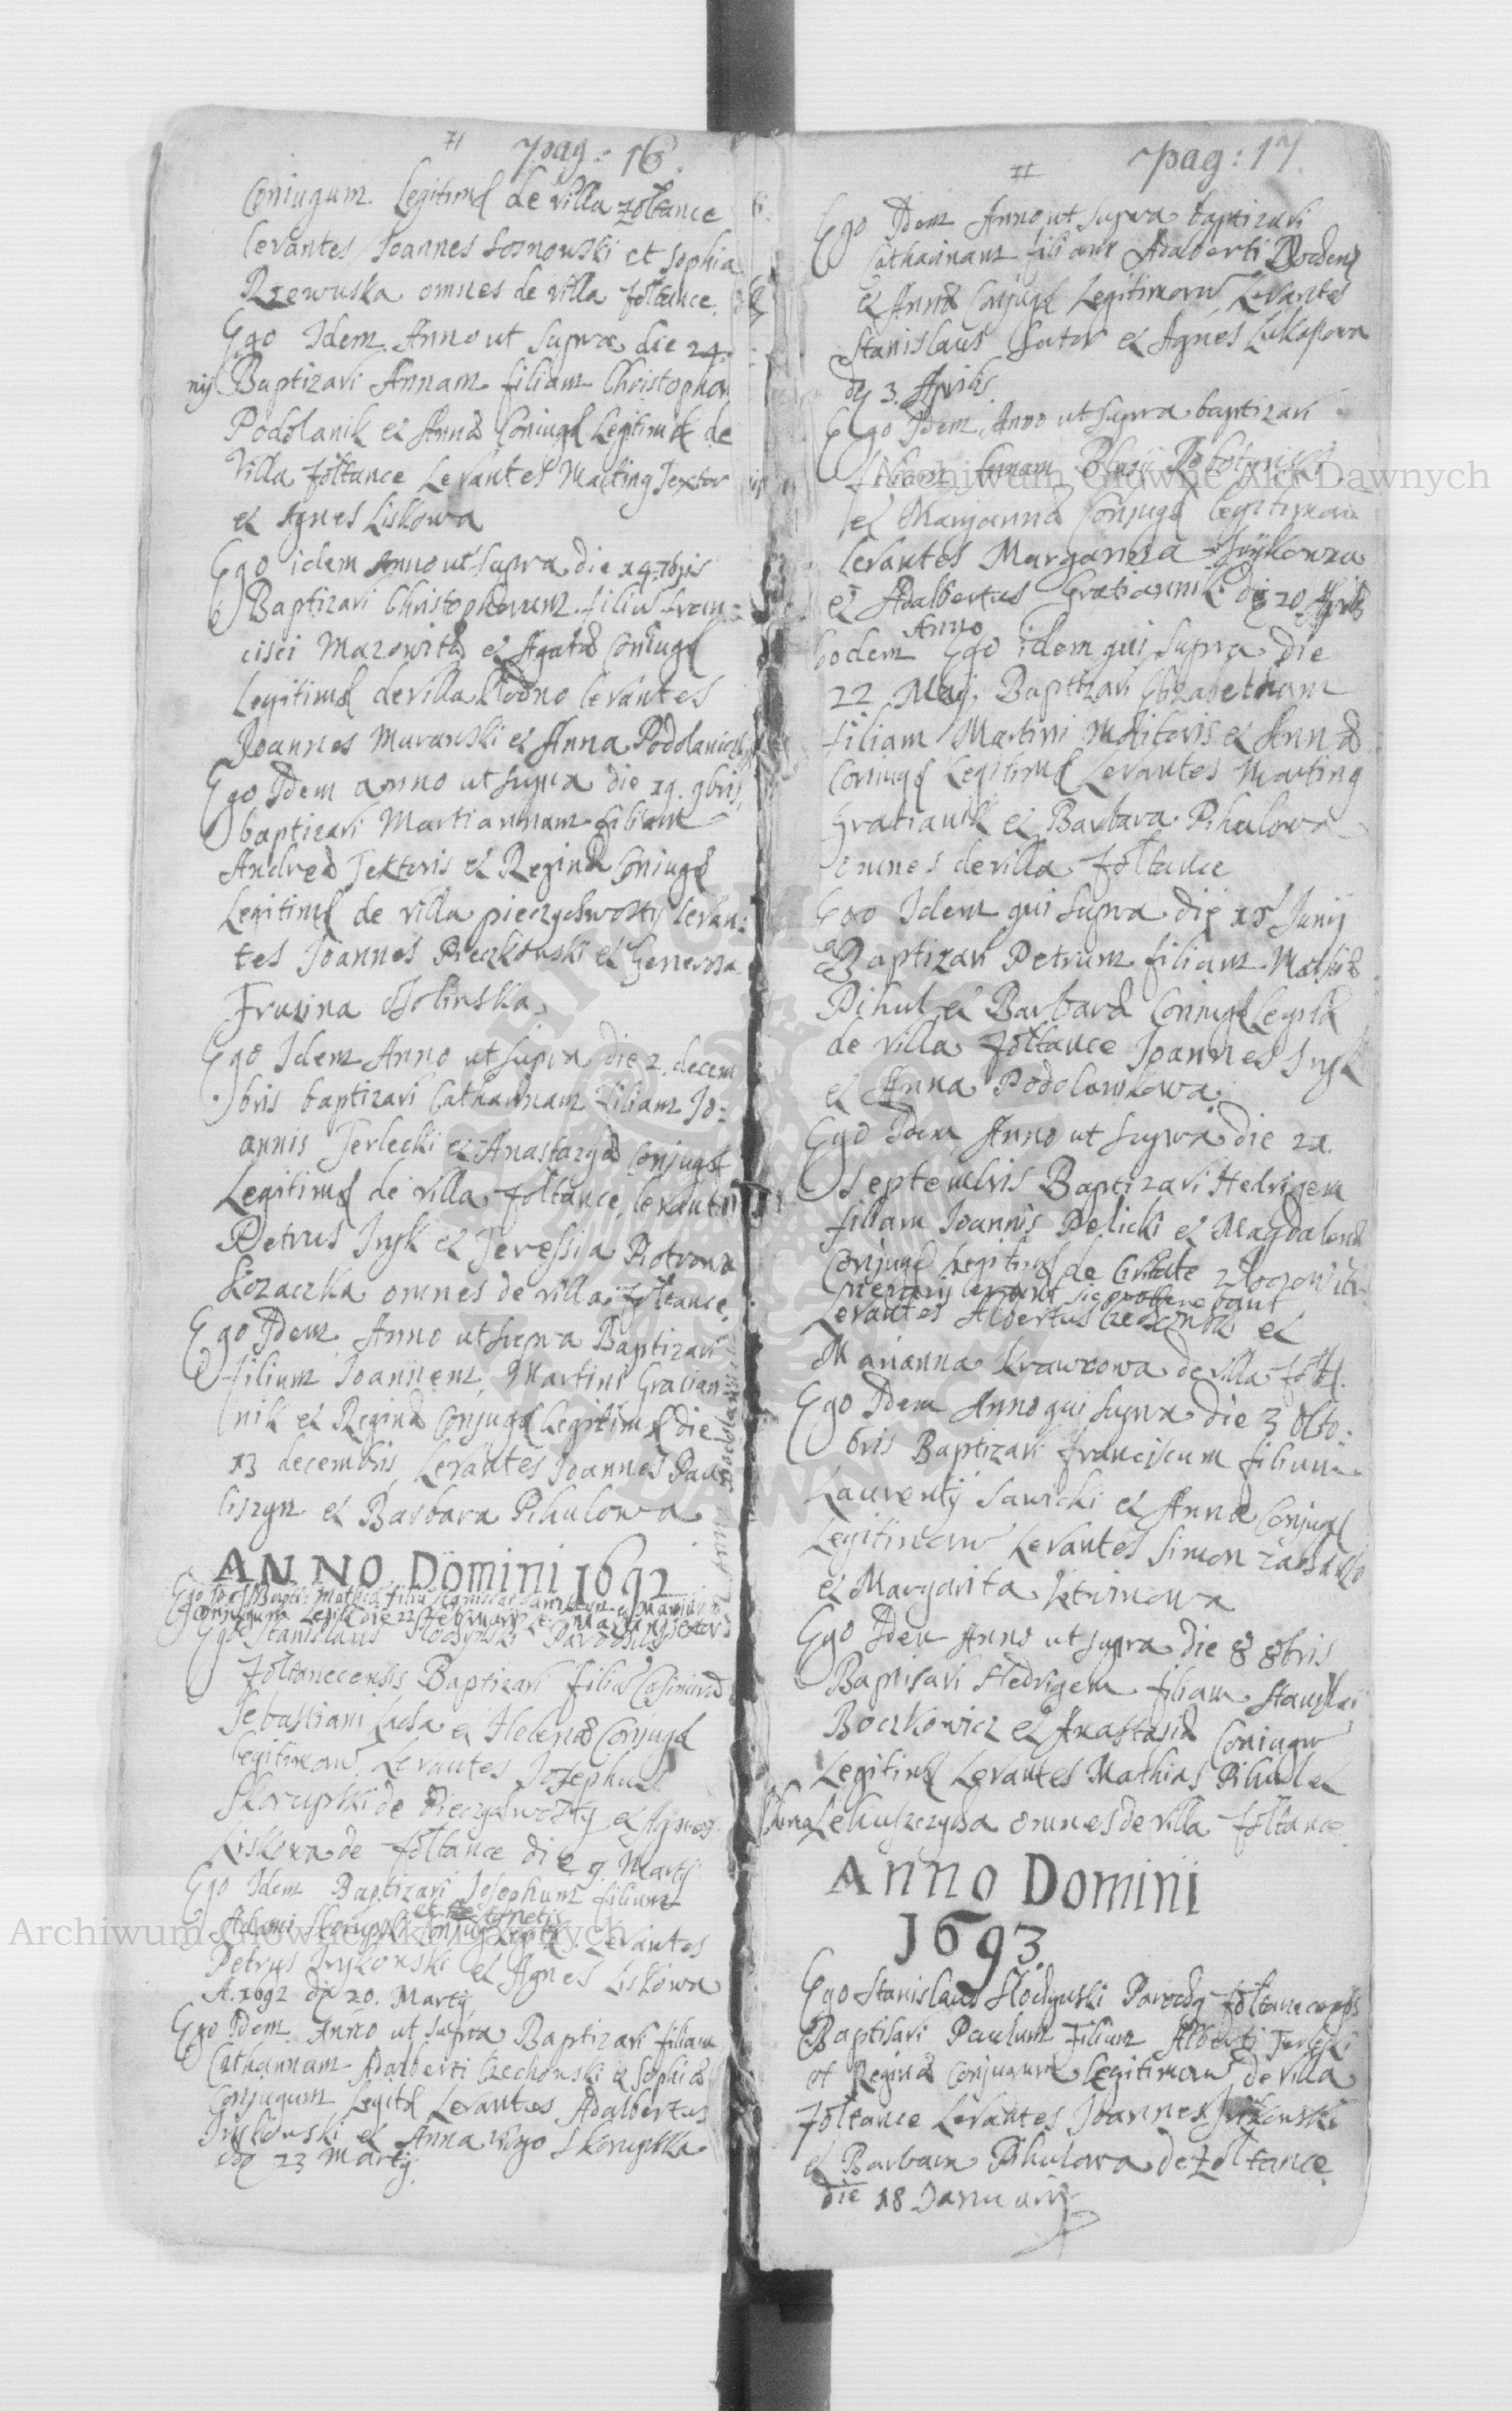 pag: 16
Conjugum Legitimor de villa Zoltance
levantes Joannes Sosnowski et Sophia
Rzewuska omnes de villa Zoltance
Ego Idem Anno ut supra die 24
Baptizavi Annam filiam Christophori
Podolanik et Annæ Coniugū Legitimor de
villa Zoltance Levantes Martinq Textor
et Agnes Liskowa
Ego idem Anno ut supra die 14 7bris
Baptizavi Christophorum filiū Fran=
cisci Mazowitæ et Agatæ Coniugū
Legitimor de villa levantes
Joannes Murawski et Anna Podolaniczka
Ego Idem anno ut supra die 19. 9bris
baptizavi Martiannam filiam
Andreæ Textoris et Reginæ Coniugū
Legitimor de villa pieczychwosty levan=
tes Joannes Pieczkowski et Generosa
Frusina
Ego Idem Anno ut supra die 2. decem
bris baptizavi Catharinam filiam Jo=
annis Terlecki et Anastazyæ Conjugū
Legitimor de villa Zoltance, levantes
Petrus Inyk et Teressija Piotrowa
Kozaczka omnes de villa Zoltance
Ego Idem Anno ut supra Baptizavi
filium Joannem Martini Gracian=
nik et Reginæ Conjugū Legitimor die
13 decembris Levantes Joannes Paw
liszyn et Barbara Pihulowa
ANNO Domini 1692
Conjugum Legit die 22 Februarij
Ego Stanislaus Slodynski Parochus
Zoltanecensis Baptizavi filiā Casimirā
Sebastiani et Helenæ Conjugū
legitimorū Levantes Josephus
Skorupski de Pieczychwosty et Agnes
Liskowa de Zoltance die 9. Martij
Ego Idem Baptizavi Josephum filium
Adami Skorupski et Agnetis Conjug Legit. Levantes
Petrus Inykowski et Agnes Liskowa
A. 1692 die 20. Martij
Ego Idem Anno ut supra Baptizavi filiam
Catharinam Adalberti Czechowski et Sophiæ
Conjugum Legit Levantes Adalbertus
et Anna virgo Skorupska
die 23 Martij
pag: 17
Ego Idem Anno ut supra baptizavi
Catharinam filiam Adalberti
et Annæ Conjugū Legitimorū Levantes
Stanislaus Sutor et Agnes Lukaszowa
die 3. Aprilis.
Ego Idem Anno ut supra baptizavi
filiam Blasij
et Marjannæ Conjugū legitimorū
levantes Margarina
et Adalbertus Gratiannik die 20 Aprilis
Eodem Anno Ego idem qui supra die
22 Maij Baptizavi Elizabetham
filiam Martini Molitoris et Annæ
Coniugū Legitimor Levantes Martinq
Gratianik et Barbara Pihulowa
omnes de villa Zoltance
Ego Idem qui supra die 15 Junij
Baptizavi Petrum filium Mathiæ
Pihul et Barbaræ Coniugū Legitimor
de villa Zoltance Joannes Inyk
et Anna Podolankowa
Ego Idem Anno ut supra die 21.
Septembris Baptizavi Hedvigem
filiam Joannis Pelicki et Magdalenæ
Conjugū Legitimor de Civitate
Levantes Albertus et
Marianna Krawcowa de villa Zolt
Ego Idem Anno qui supra die 3 Octo=
bris Baptizavi Franciscum filium
Laurentij Sawicki et Annæ Conjugū
Legitimorū Levantes Simon
et Margarita
Ego Idem Anno ut supra die 8 8bris
Baptisavi Hedvigem filiam Stanislai
Boczkowicz et Anastasiæ Coniugū
Legitimor Levantes Mathias Pihul et
omnes de villa Zoltance
Anno Domini
1693.
Ego Stanislaus Slodynski Parochq Zoltanecensis
Baptisavi Paulum Filium Alberti Terlecki
et Reginæ Conjugum Legitimorū de villa
Zoltance Levantes Joannes
et Barbara Pihulowa de Zoltance
die 18 Januarij
Archiwum Główne Akt Dawnych
Archiwum Główne Akt Dawnych